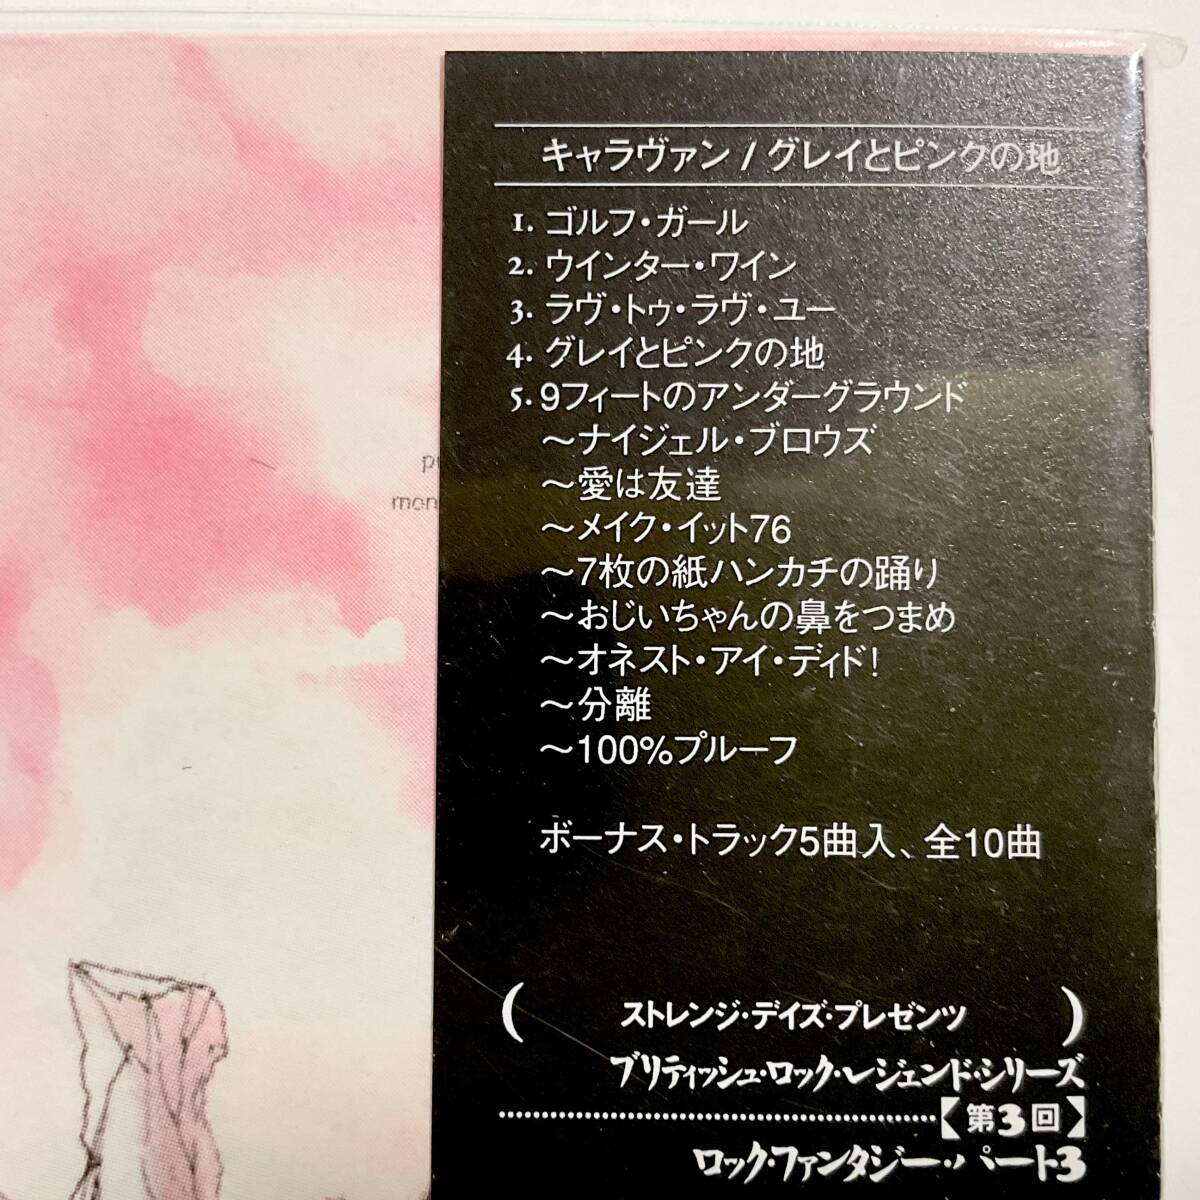 キャラヴァン / グレイとピンクの地
1. ゴルフ・ガール
2. ウインター・ワイン
3. ラヴ・トゥ・ラヴ・ユー
4. グレイとピンクの地
5. 9フィートのアンダーグラウンド
～ナイジェル・ブロウズ
～愛は友達
～メイク・イット76
～7枚の紙ハンカチの踊り
～おじいちゃんの鼻をつまめ
～オネスト・アイ・ディド!
～分離
～100%プルーフ
ボーナス・トラック5曲入、全10曲
( ストレンジ・デイズ・プレゼンツ )
ブリティッシュ・ロック・レジェンド・シリーズ
【第3回】
ロック・ファンタジー・パート3